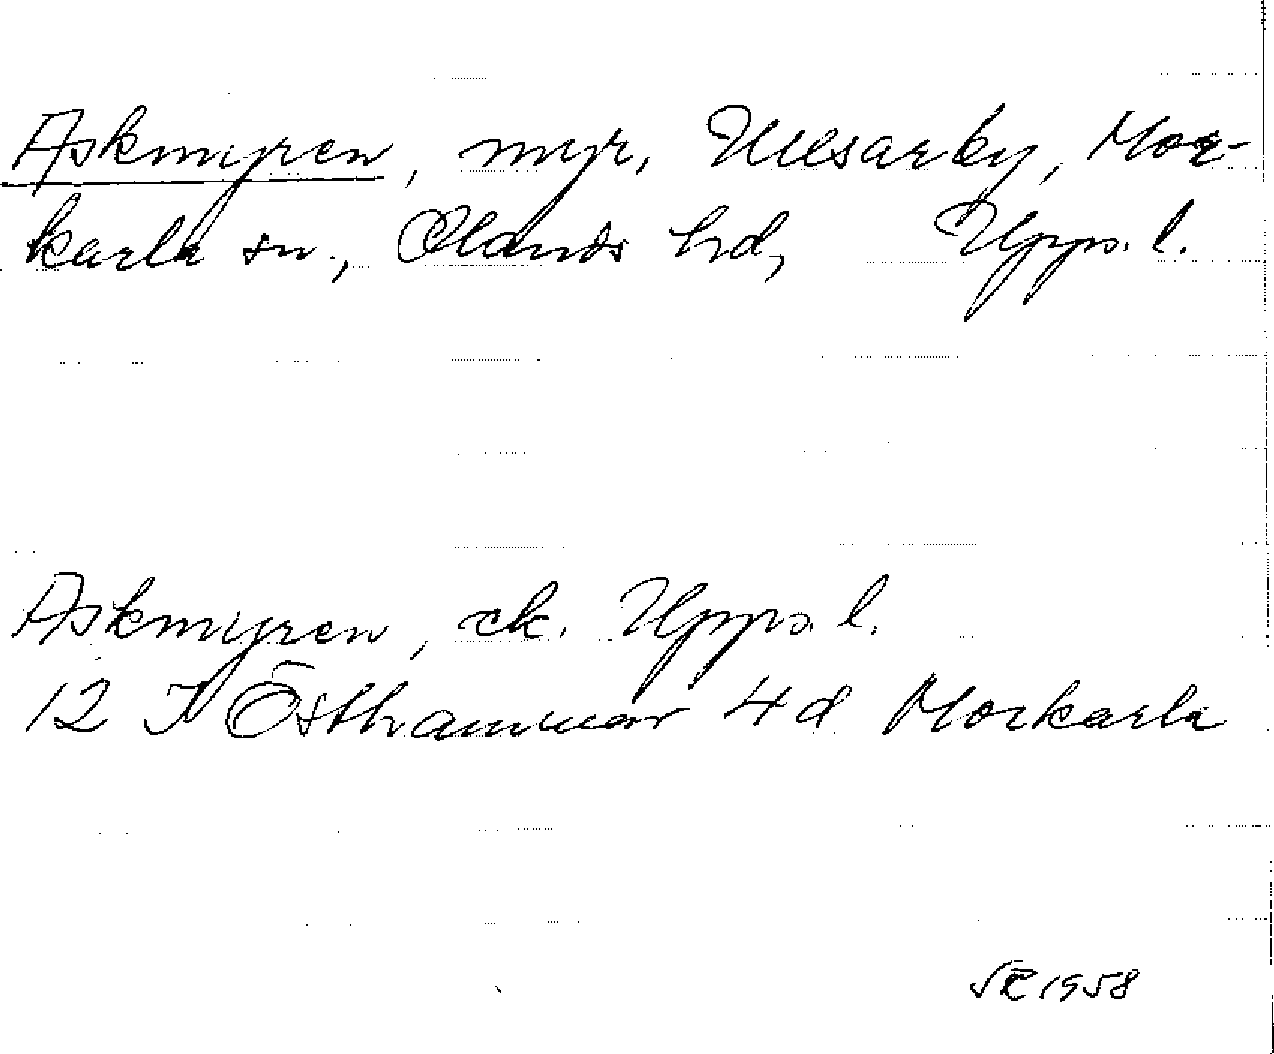 Askmyren, myr, Ullsarby, Mor-
karla sn., Olands hd, Upps. l.
Askmyren, ek. Upps. l.
12 I Östhammar 4d Morkarla
1958